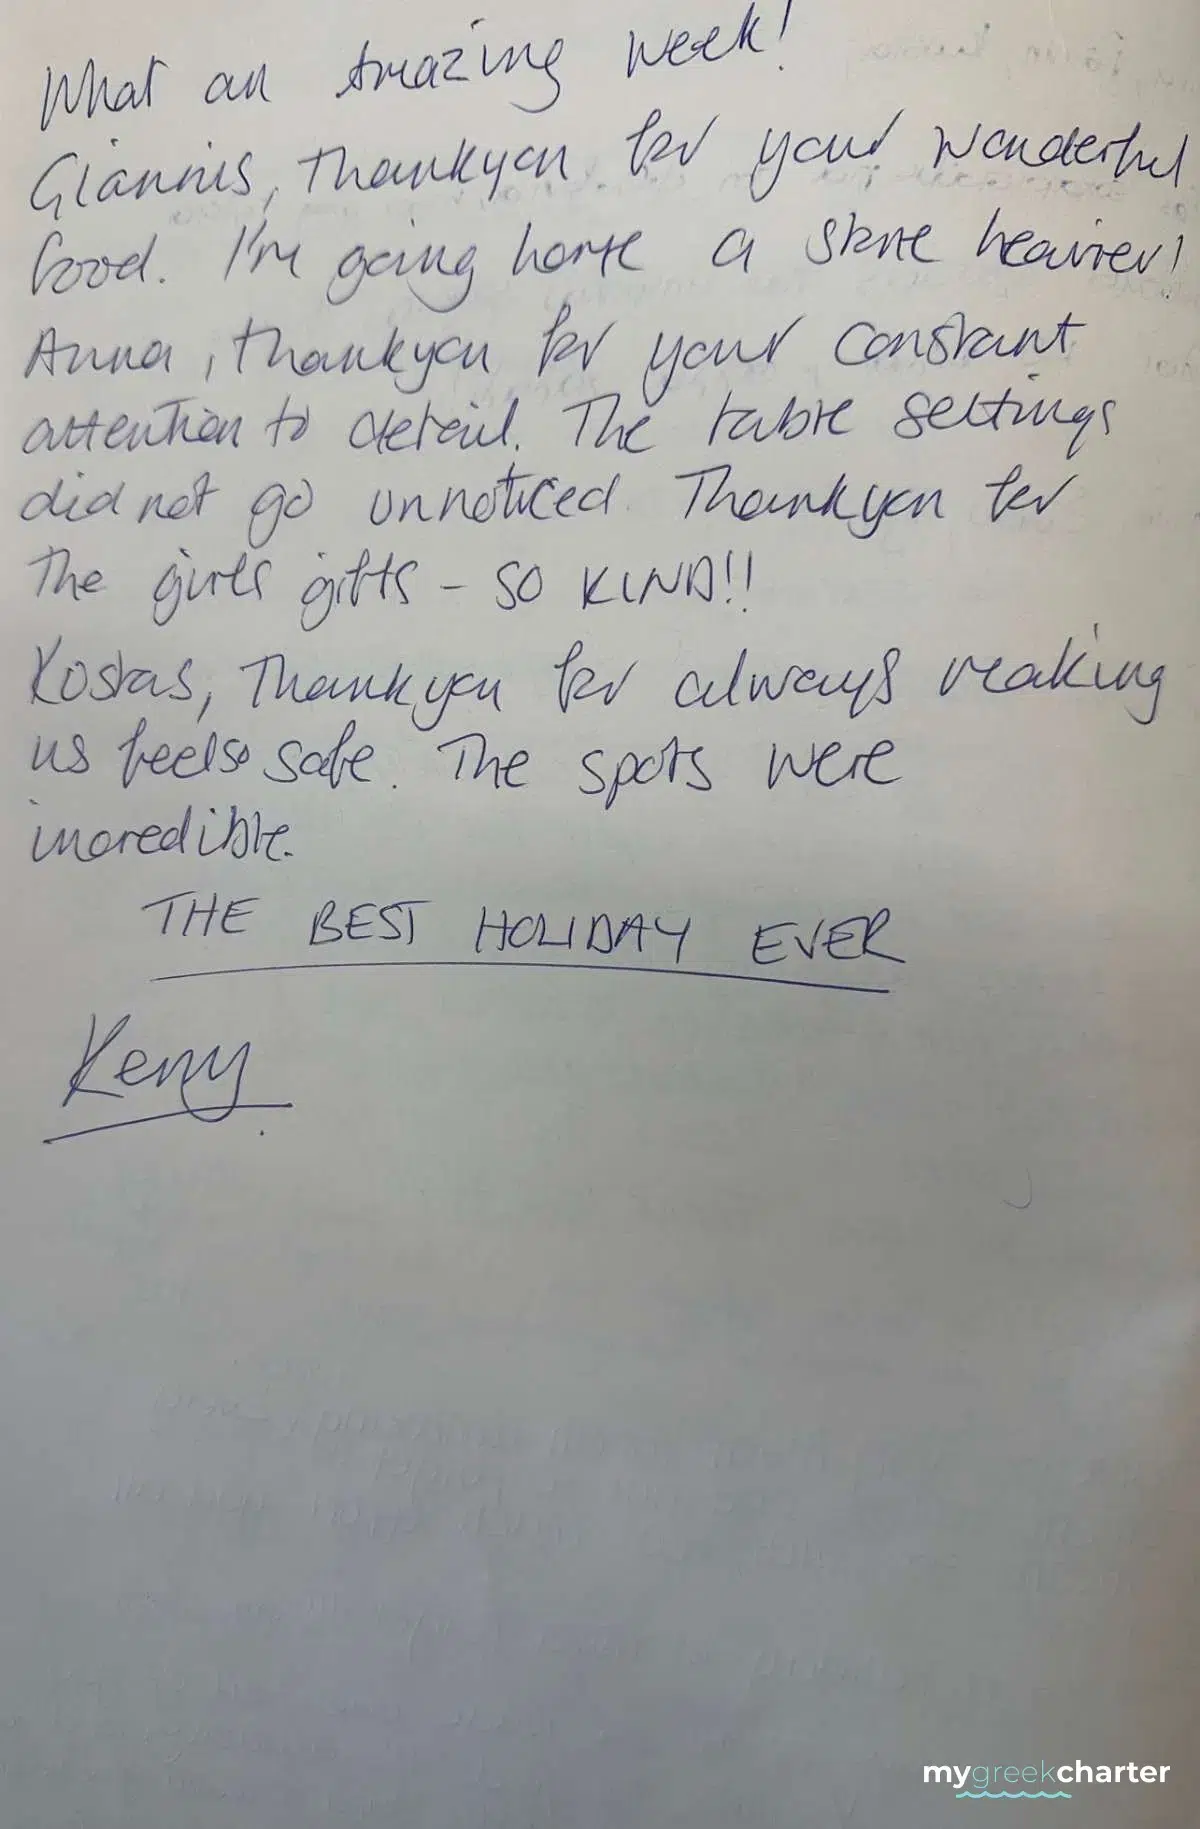 What an Amazing week!
Giannis, Thankyou for your wonderful
food. I'm going home a stone heavier!
Anna, thankyou for your constant
attention to detail. The table settings
did not go unnoticed. Thankyou for
the girls gifts - SO KIND!!
Kostas, Thankyou for always making
us feel so safe. The spots were
incredible.
THE BEST HOLIDAY EVER
Kerry
mygreekcharter